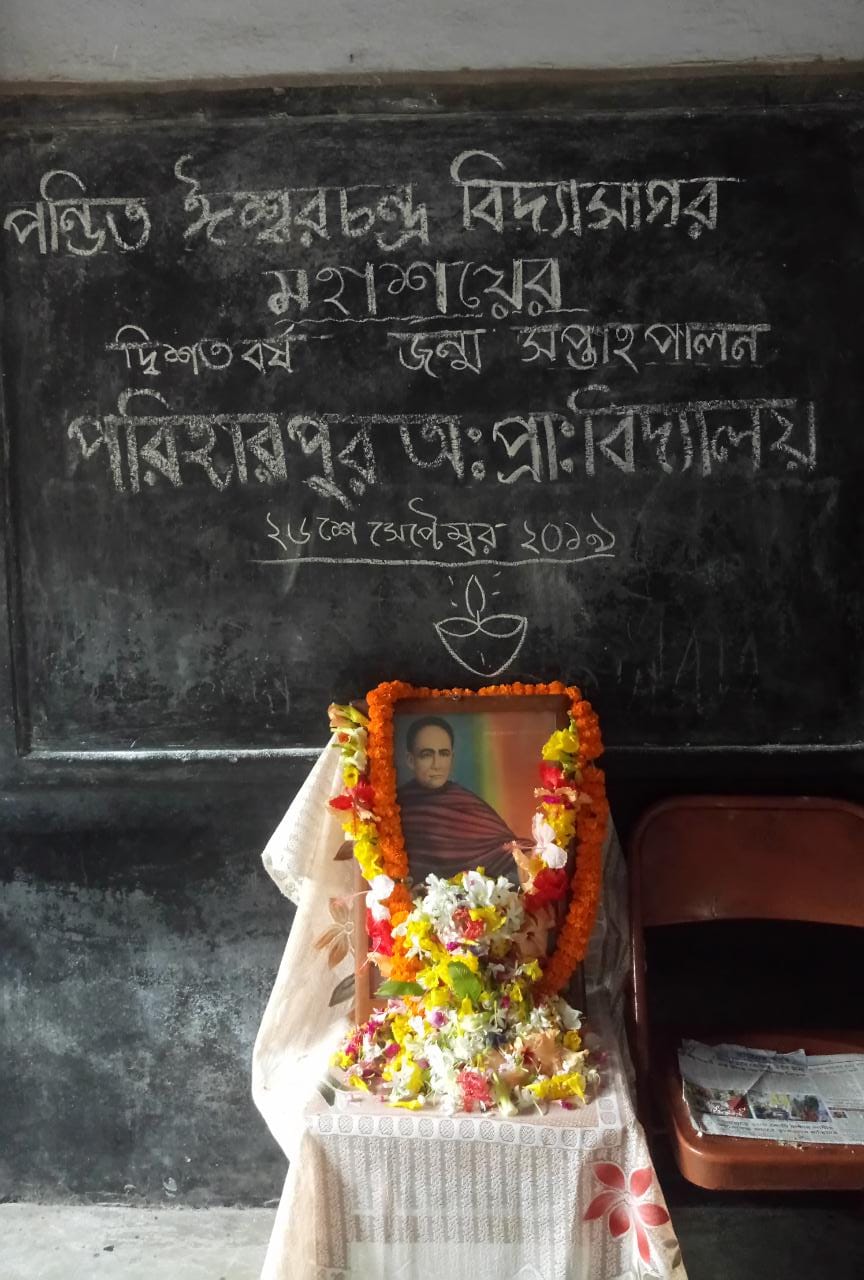 পন্ডিত ঈশ্বরচন্দ্র বিদ্যাসাগর
মহাশয়ের
দ্বিশত বর্ষ জন্ম সপ্তাহ পালন
পরিহারপুর অঃপ্রাঃবিদ্যালয়
২৬শে সেপ্টেম্বর ২০১৯